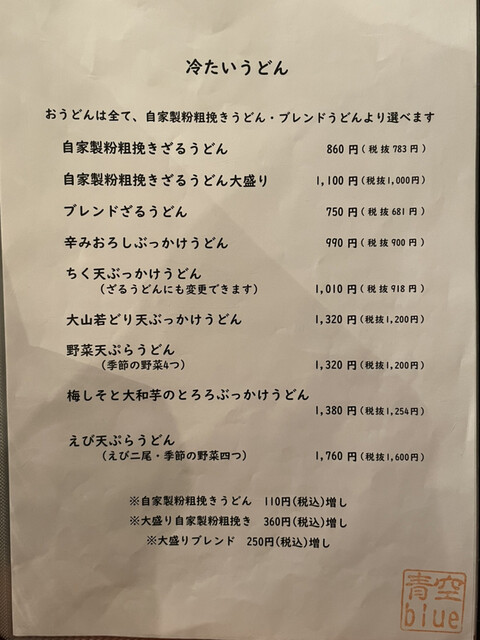 冷たいうどん
おうどんは全て、自家製粉粗挽きうどん・ブレンドうどんより選べます
自家製粉粗挽きざるうどん 860 円(税抜783円)
自家製粉粗挽きざるうどん大盛り 1,100 円(税抜1,000円)
ブレンドざるうどん 750 円(税抜681円)
辛みおろしぶっかけうどん 990 円(税抜900円)
ちく天ぶっかけうどん
(ざるうどんにも変更できます) 1,010 円(税抜918円)
大山若どり天ぶっかけうどん 1,320 円(税抜1,200円)
野菜天ぷらうどん
(季節の野菜4つ) 1,320 円(税抜1,200円)
梅しそと大和芋のとろろぶっかけうどん
1,380 円(税抜1,254円)
えび天ぷらうどん
(えび二尾・季節の野菜四つ) 1,760 円(税抜1,600円)
※自家製粉粗挽きうどん 110円(税込)増し
※大盛り自家製粉粗挽き 360円(税込)増し
※大盛りブレンド 250円(税込)増し
青空
blue